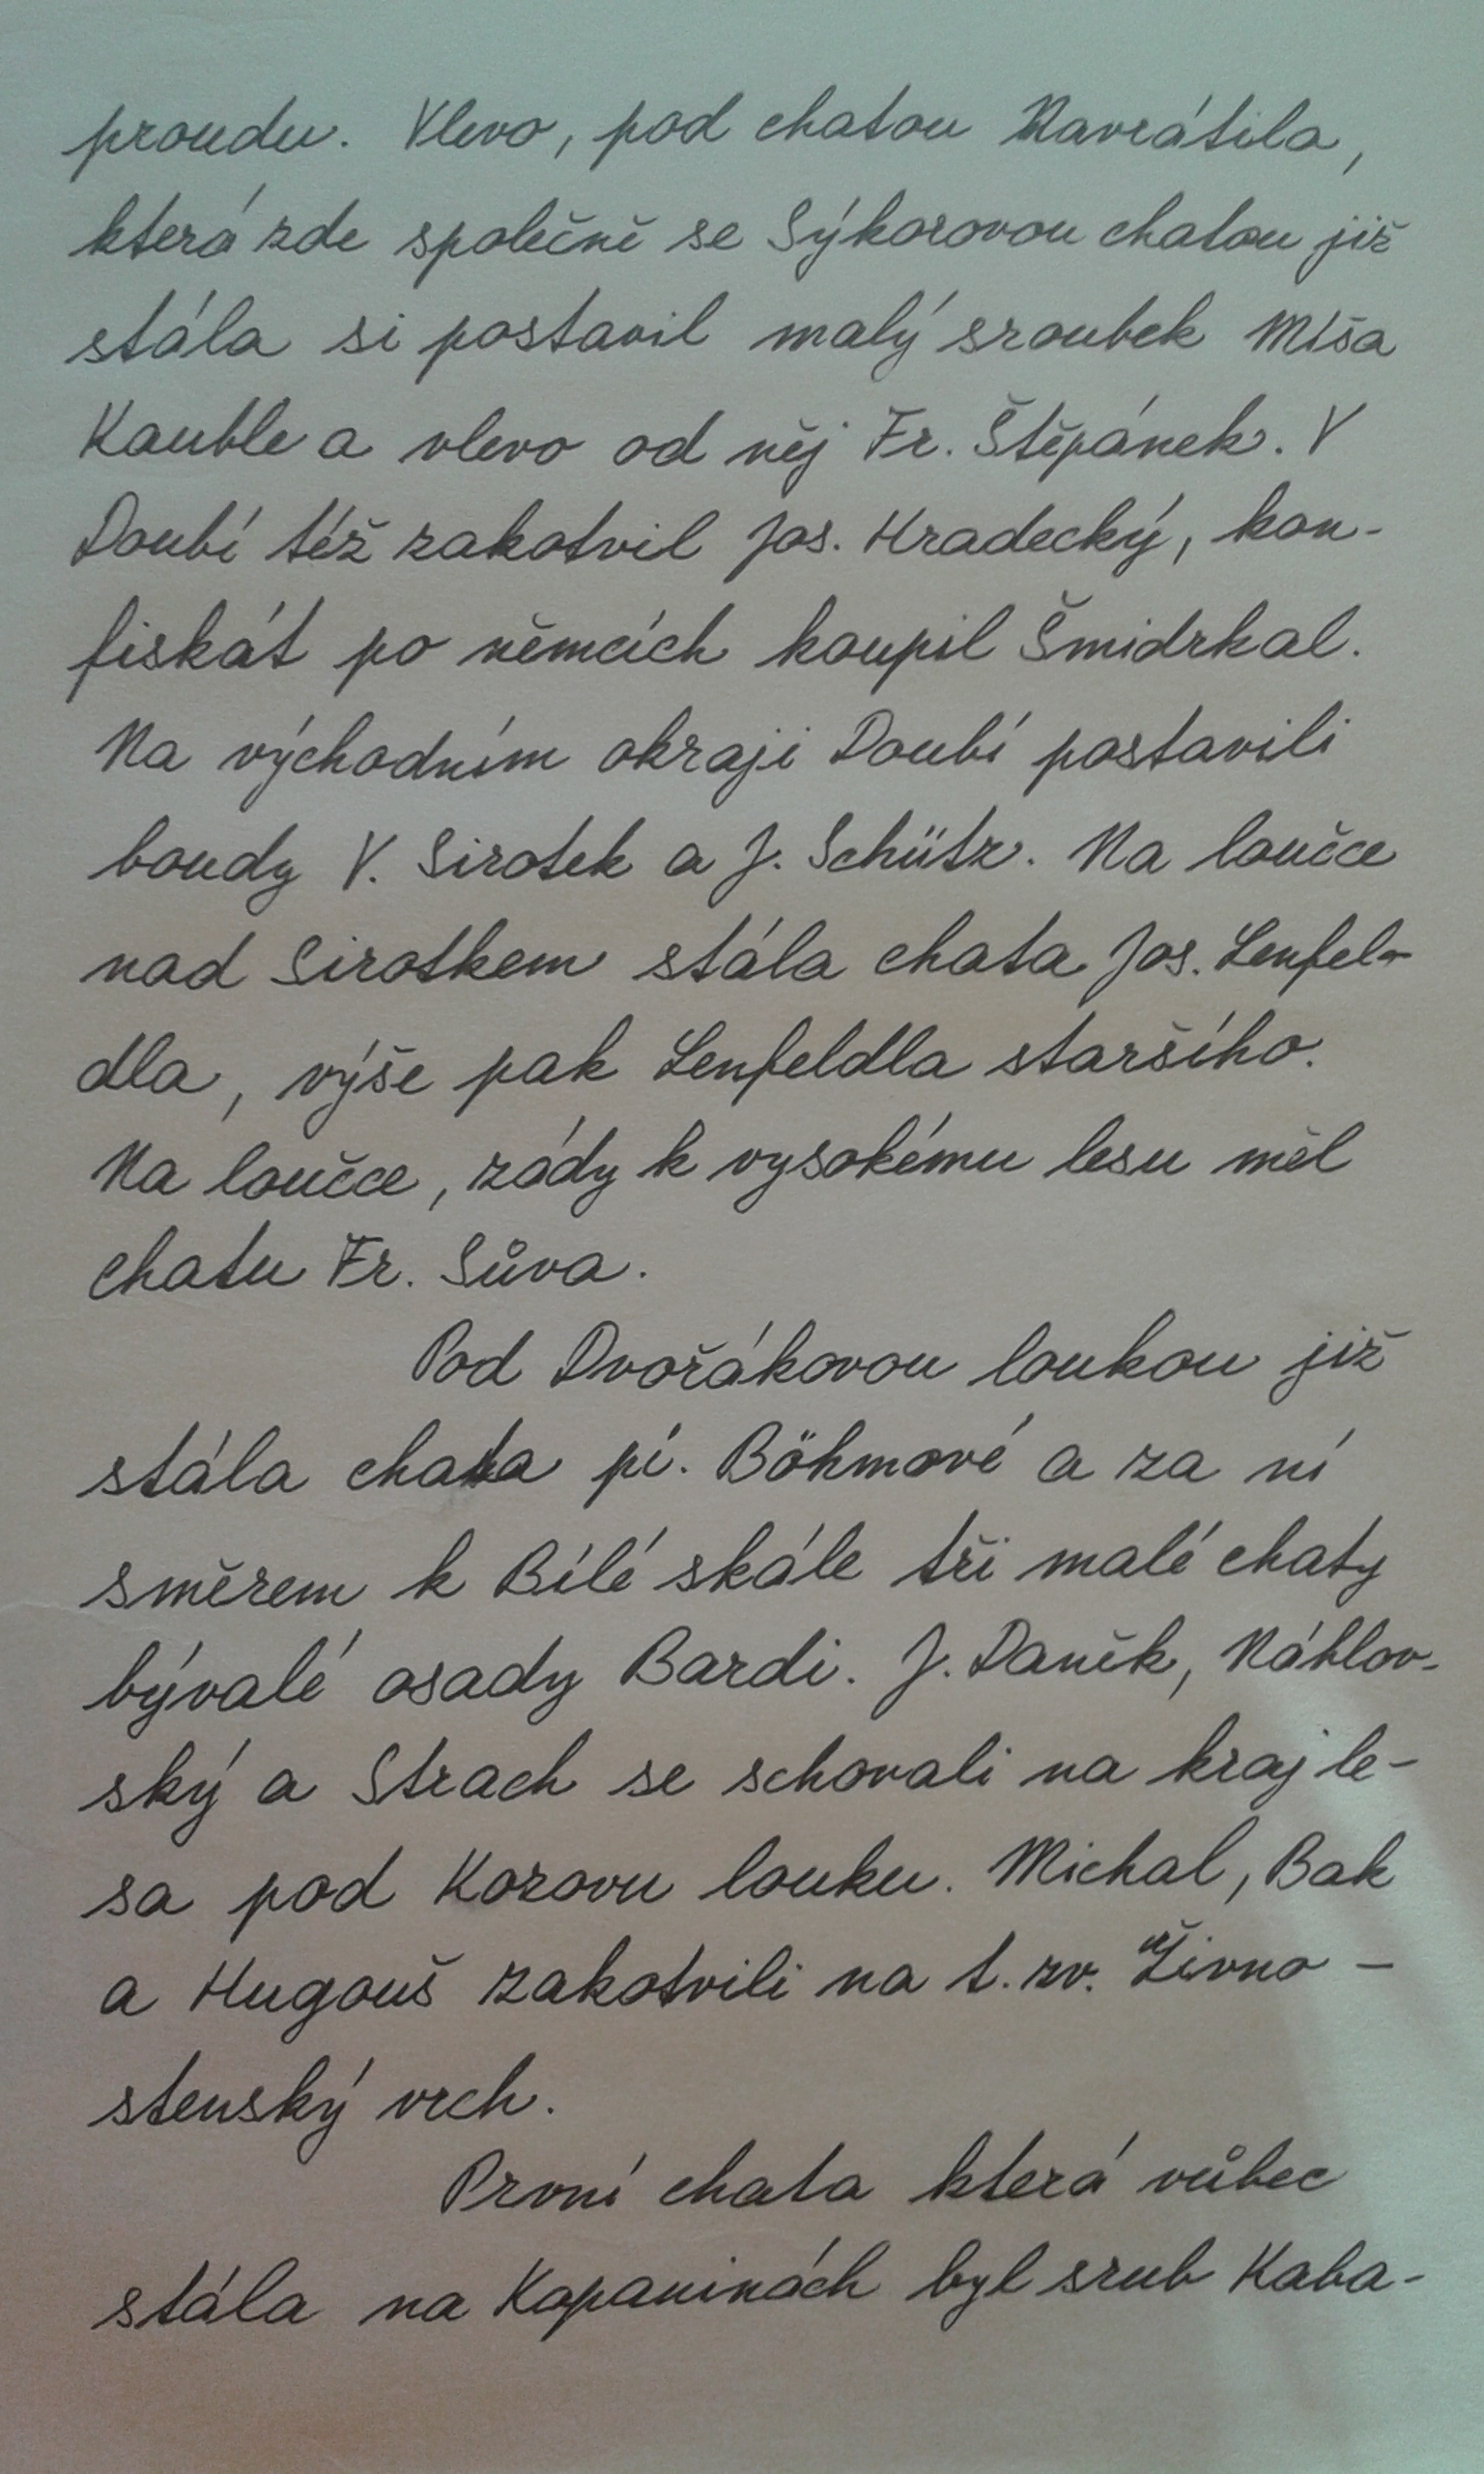 proudu. Vlevo, pod chatou Navrátila,
která zde společně se Sýkorovou chatou již
stála si postavil malý sroubek Míša
Kauble a vlevo od něj Fr. Štěpánek. V
Doubí též zakotvil Jos. Hradecký, kon-
fiskát po němcích koupil Šmidrkal.
Na východním okraji Doubí postavili
boudy V. Sirotek a J. Schütz. Na loučce
nad Sirotkem stála chata Jos. Lenfel-
dla, výše pak Lenfeldla staršího.
Na loučce, zády k vysokému lesu měl
chatu Fr. Sůva.
Pod Dvořákovou loukou již
stála chata pí. Böhmové a za ní
směrem k Bílé skále tři malé chaty
bývalé osady Bardi. J. Daněk, Náhlov-
ský a Strach se schovali na kraj le-
sa pod Korovu louku. Michal, Bak
a Hugouš zakotvili na t. zv. "Živno-
stenský vrch.
První chata která vůbec
stála na Kopaninách byl srub Kaba-